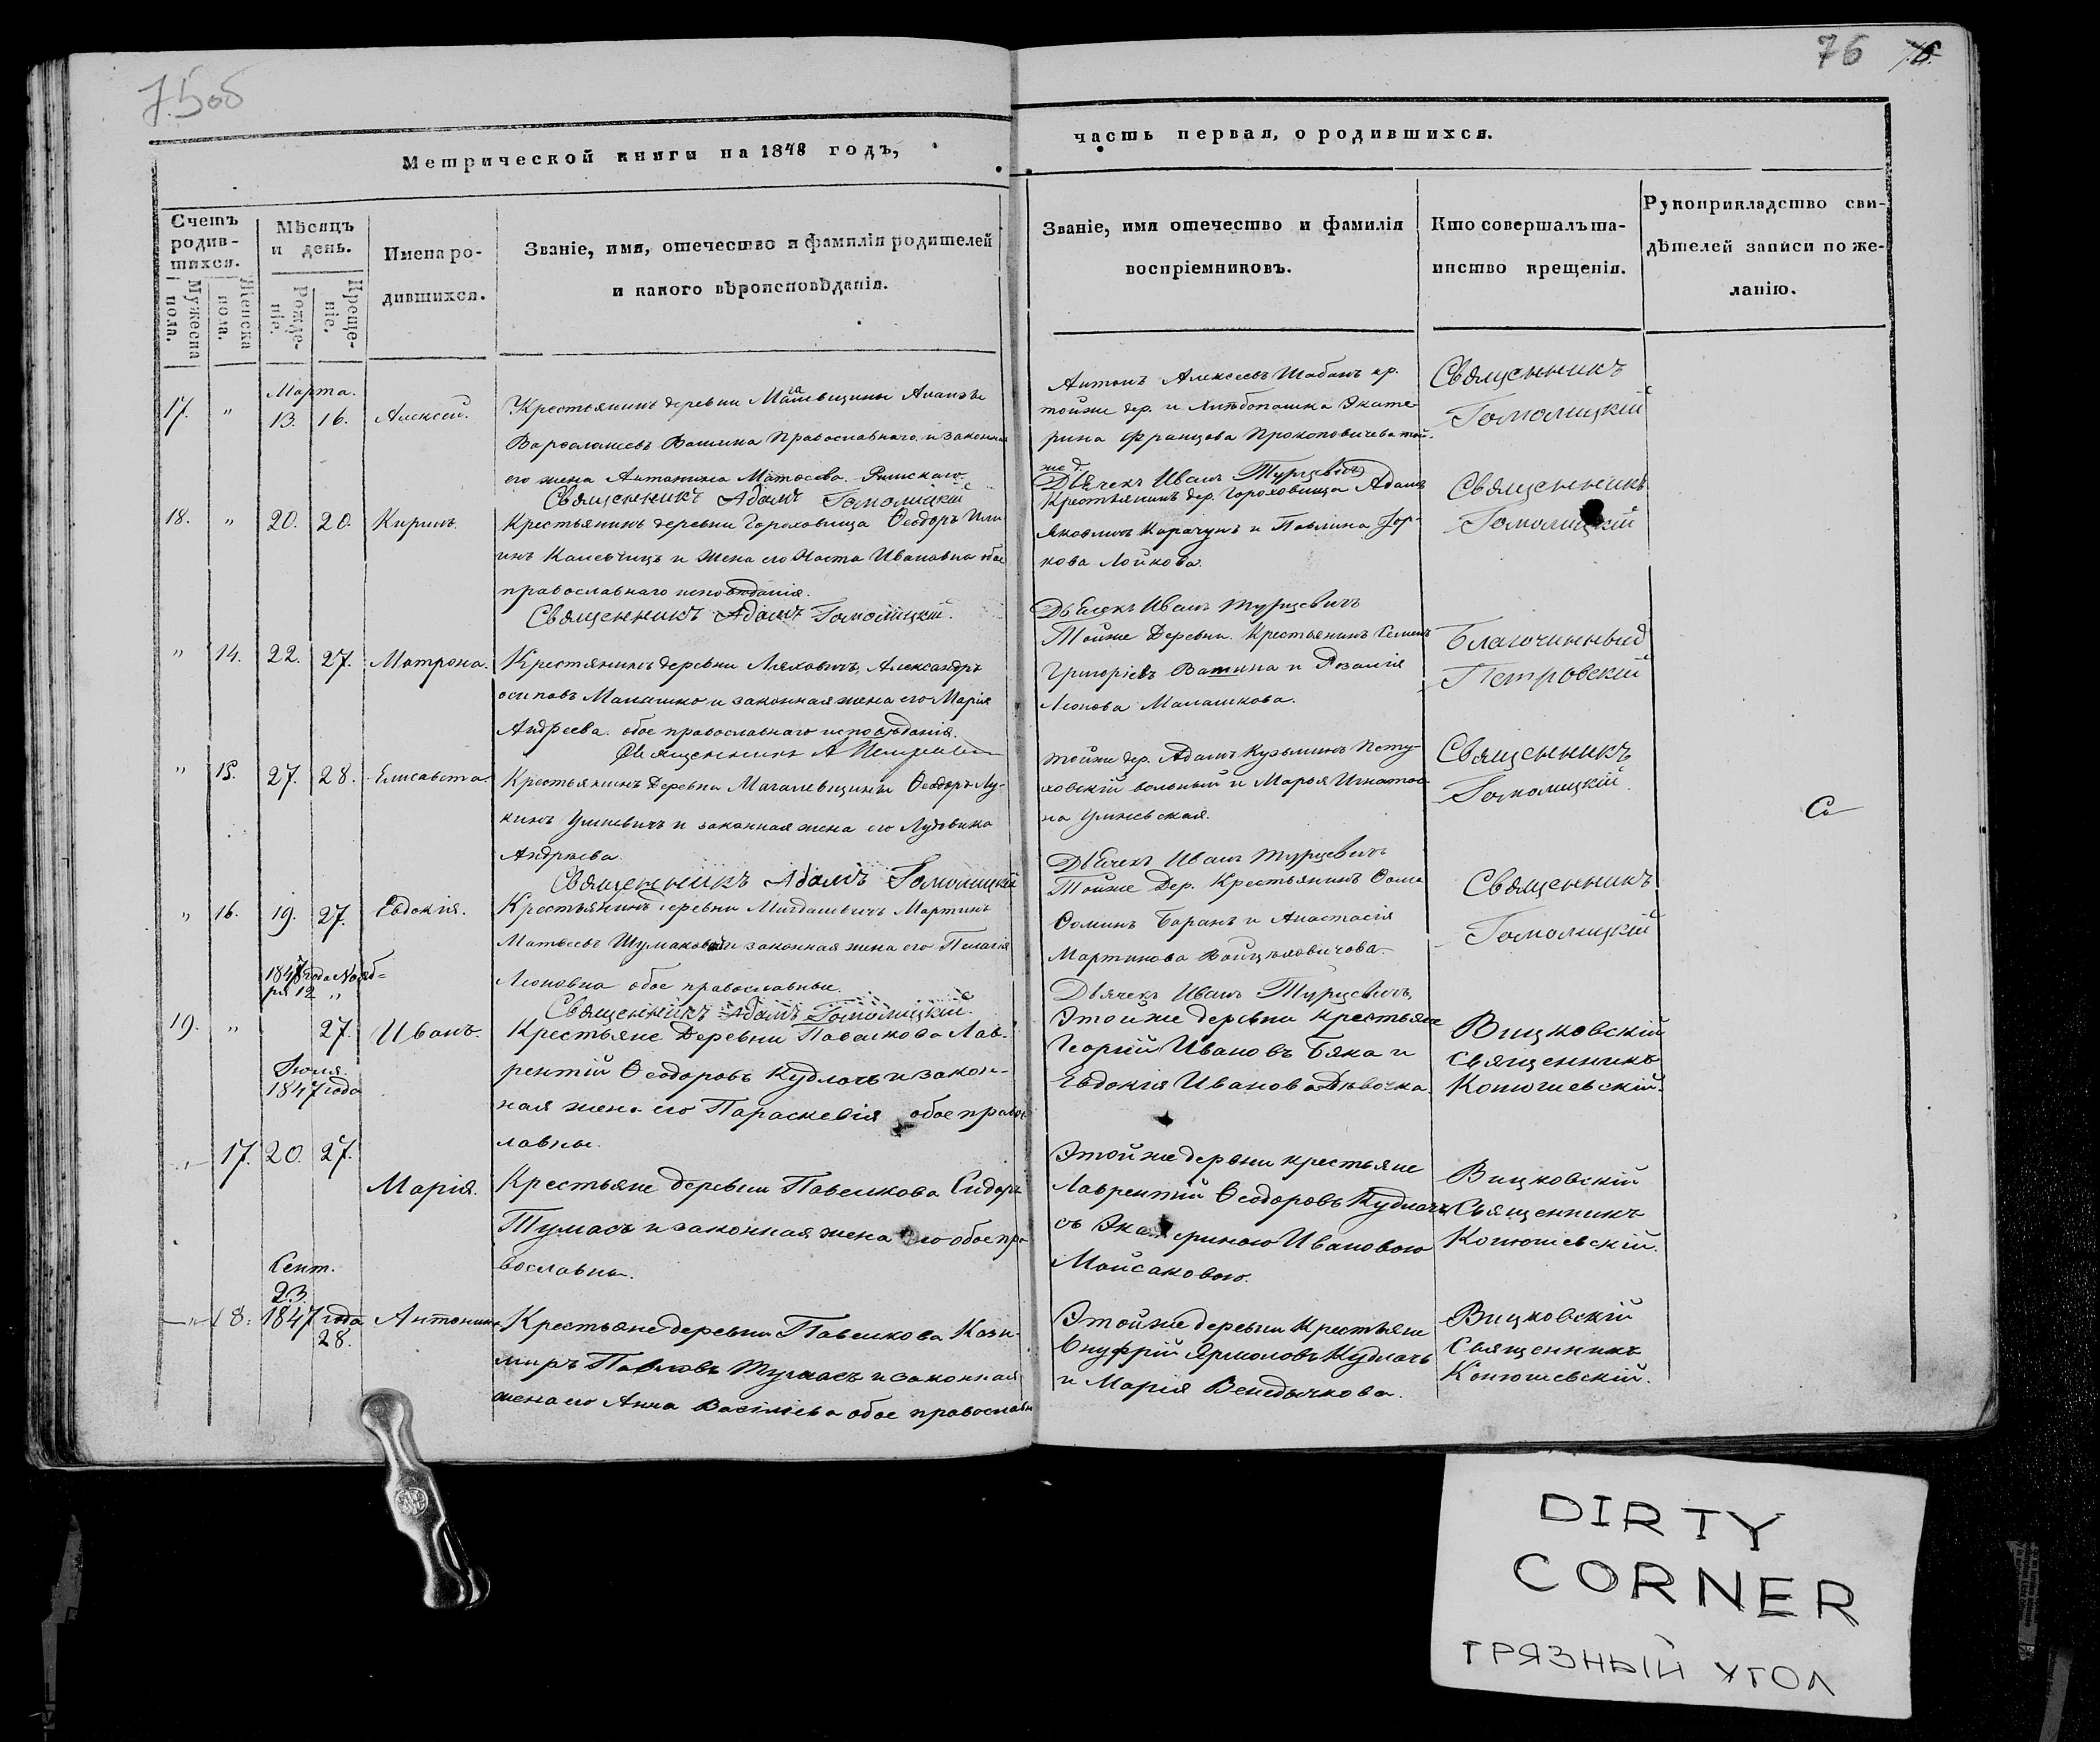 75об
76
Метрической книги на 1848 годъ,
часть первая, о родившихся.
Счетъ родив-
шихся.
Мужеска пола.
Женска пола.
Мѣсяцъ и день.
Рожде-
ніе.
Креще-
ніе.
Имена ро-
дившихся.
Званіе, имя, отечество и фамилія родителей
и какого вѣроисповѣданія.
Званіе, имя отечество и фамилія
воспріемниковъ.
Кто совершалъ та-
инство крещенія.
Рукоприкладство сви-
дѣтелей записи по же-
ланію.
Марта.
17. " 13. 16. Алексей.
Крестьянинъ деревни
Православнаго и законная
его жена Антонина Матѳеева Римскаго
Священникъ Адамъ Гомолицкій
Антонъ Алексеевъ Шабанъ кр.
тойже дер. и Экате-
рина Францова Прокоповичева той-
же д.
Дьячекъ Иванъ Турцевичъ
Священникъ
Гомолицкій
18. " 20. 20. Кирилъ.
Крестьянинъ деревни Гороховища Ѳеодоръ Или-
инъ и жена его Наста Ивановна обое
православнаго исповѣданія.
Священникъ Адамъ Гомолицкій.
Крестьянинъ дер. Гороховища Адамъ
Яковлевъ Карачунъ и Павлина Гор-
кова Лойкова.
Дьячекъ Иванъ Турцевичъ
Священникъ
Гомолицкій
" 14. 22. 27. Матрона.
Крестянинъ деревни Ляховичъ, Александръ
осиповъ Малашко и законная жена его Марія
Андреева обое православнаго исповѣданія.
Священникъ А
Тойже Деревни Крестьянинъ Семенъ
Григоріевъ Ватина и Розалія
Леонова Малашкова.
Благочинный
Петровскій
" 15. 27. 28. Елисавета.
Крестьянинъ Деревни Ѳеодоръ Лу-
кинъ и законная жена его Лудовика
Андреева.
Священникъ Адамъ Гомолицкій
тойже дер. Адамъ Кузьминъ Пету-
ховскій вольный и Марья Игнатов-
на
Дьячекъ Иванъ Турцевичъ
Священникъ
Гомолицкій
" 16. 19. 27. Евдокія.
Крестьянинъ деревни Мартинъ
Матвеевъ и законная жена его Пелагія
Леоновна обое православные.
Священникъ Адамъ Гомолицкій.
Тойже Дер. Крестьянинъ Ѳома
Ѳоминъ Баранъ и Анастасія
Мартинова
Дьячекъ Иванъ Турцевичъ
Священникъ
Гомолицкій
1847 года Нояб-
ря 12 "
19. " 27. Иванъ.
Крестьяне Деревни Павелкова Лав-
рентій Ѳеодоровъ Кудлачъ и закон-
ная жена его Параскевія обое правос-
лавны.
Этойже деревни крестьяне
Георгій Ивановъ Бяка и
Евдокія Иванова Дѣвочка.
Вицковскій
священникъ
Конюшевскій.
Іюля.
1847 года
" 17. 20. 27.
Марія.
Крестьяне деревни Павелкова Сидоръ
Тумасъ и законная жена его обое пра-
вославны.
Этойже дервни крестьяне
Лаврентій Ѳеодоровъ Кудлачъ
съ Экатериною Ивановою
Мойсаковою.
Вицковскій
Священникъ
Конюшевскій.
Сент.
23.
" 18. 1847 года
28.
Антонина
Крестьяне деревни Павелкова Кази-
миръ Павловъ Тумасъ и законная
жена его Анна Васіліева обое православны
Этойже деревни Крестьяне
Онуфрій Ярмоловъ Кудлачъ
и Марія Бенедычкова.
Вицковскій
Священникъ
Конюшевскій.
DIRTY
CORNER
ГРЯЗНЫЙ УГОЛ